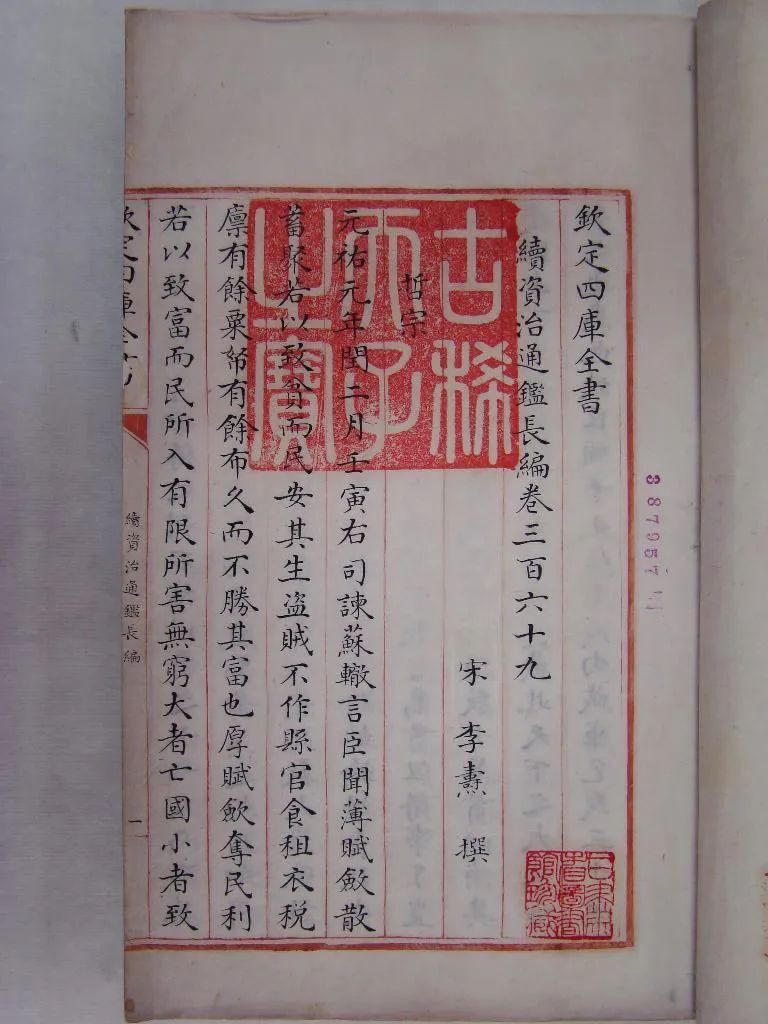 欽定四庫全書
續資治通鑑長編卷三百六十九
宋 李燾 撰
哲宗
元祐元年閏二月壬寅右司諫蘇轍言臣聞薄賦斂散
蓄聚若以致貧而民安其生盜賊不作縣官食租衣稅
廩有餘粟帑有餘布久而不勝其富也厚賦斂奪民利
若以致富而民所入有限所害無窮大者亡國小者致
欽定四庫全書
續資治通鑑長編
一
古稀
天子
之寶
387957